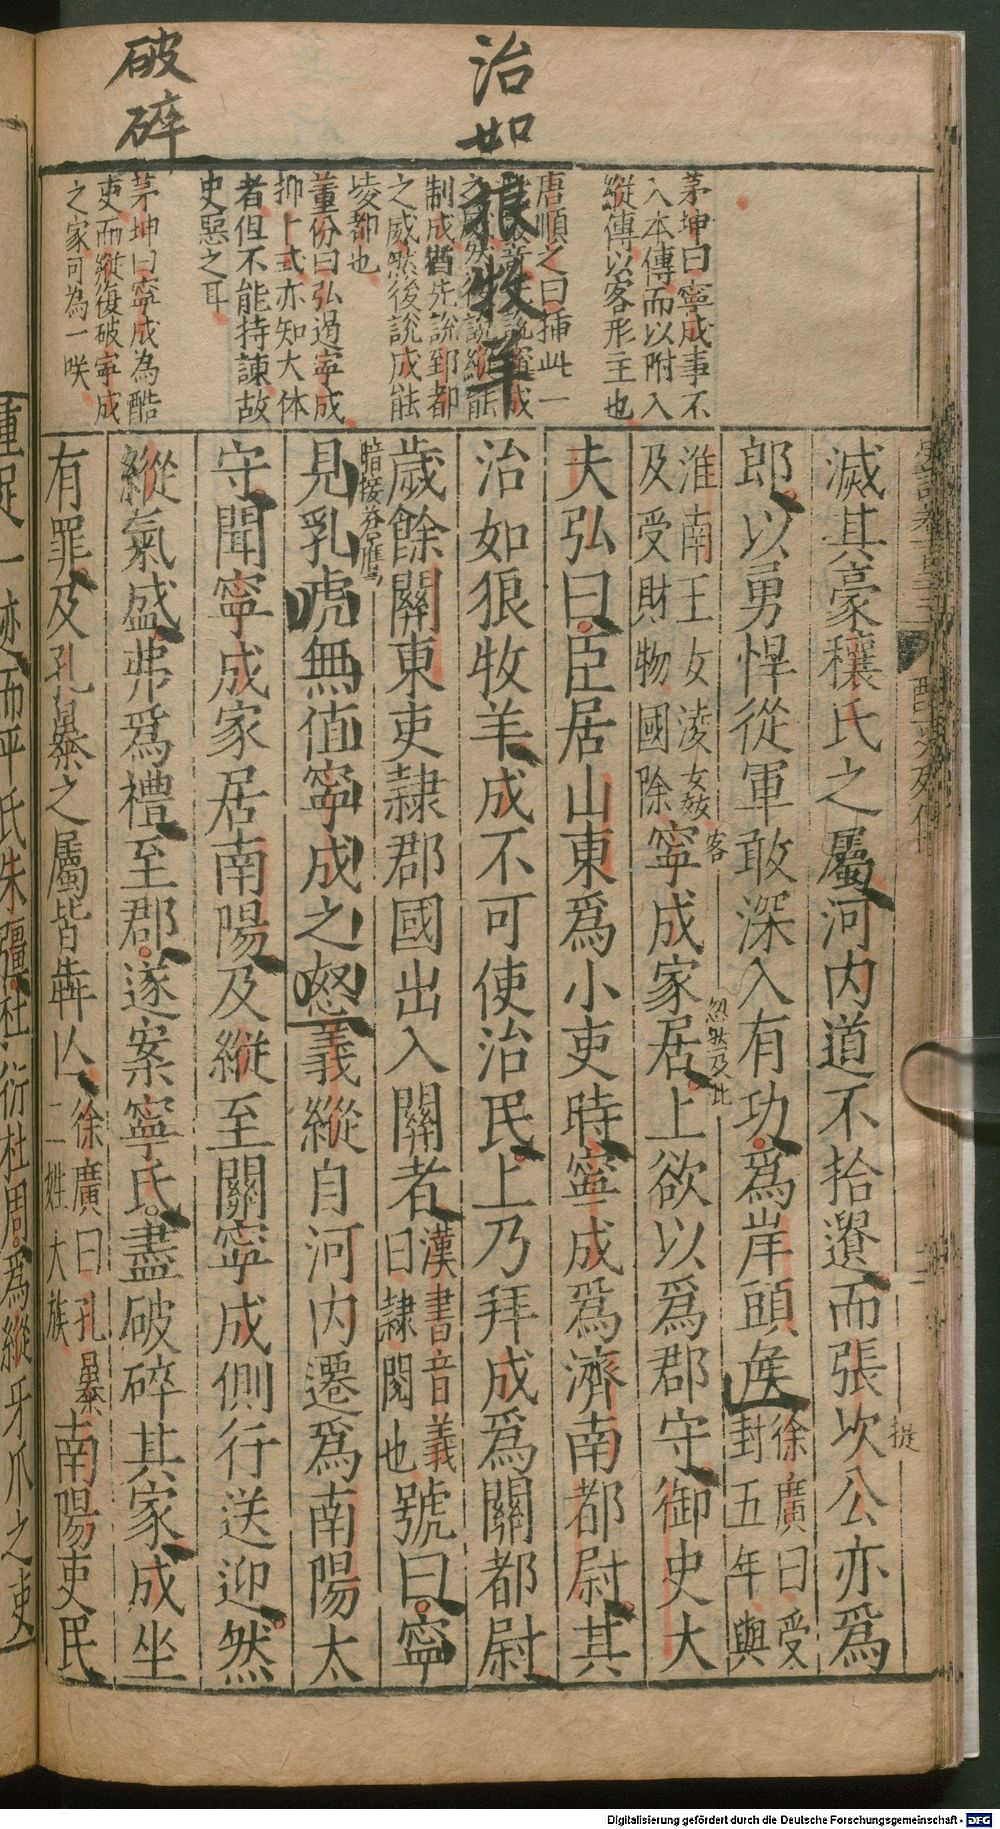 治如狼牧羊
破碎
茅坤曰寧成事不
入本傳而以附入
縱傳以客形主也
唐順之曰揷此一
制成酋先說郅都
之威然後說成能
埈都也
董份曰弘遏寧成
抑上式亦知大体
者但不能持諫故
史惡之耳
茅坤曰寧成為酷
吏而縱復破寧成
之家可為一咲
滅其豪穰氏之屬河內道不拾遺而張坎公亦爲
郎以勇悍從軍敢深入有功爲岸頭矦徐廣曰受
封五年與
淮南王女淩女姦
及受財物國除寧成家居上欲以爲郡守御史大
客
忽然及此
夫弘曰臣居山東爲小吏時寧成爲濟南都尉其
治如狼牧羊成不可使治民上乃拜成爲關都尉
歲餘關東吏隷郡國出入關者漢書音義
曰隷閱也號曰寧
暗接蒼鷹
見乳虎無值寧成之怒義縱自河內遷爲南陽太
守聞寧成家居南陽及縱至關寧成側行送迎然
縱氣盛弗爲禮至郡遂案寧氏盡破碎其家成坐
有罪及孔暴之屬皆犇亾徐廣曰孔暴
二姓大族南陽吏民
重足一迹而平氏朱彊杜衍杜周爲縱牙爪之吏
Digitalisierung gefördert durch die Deutsche Forschungsgemeinschaft - DFG